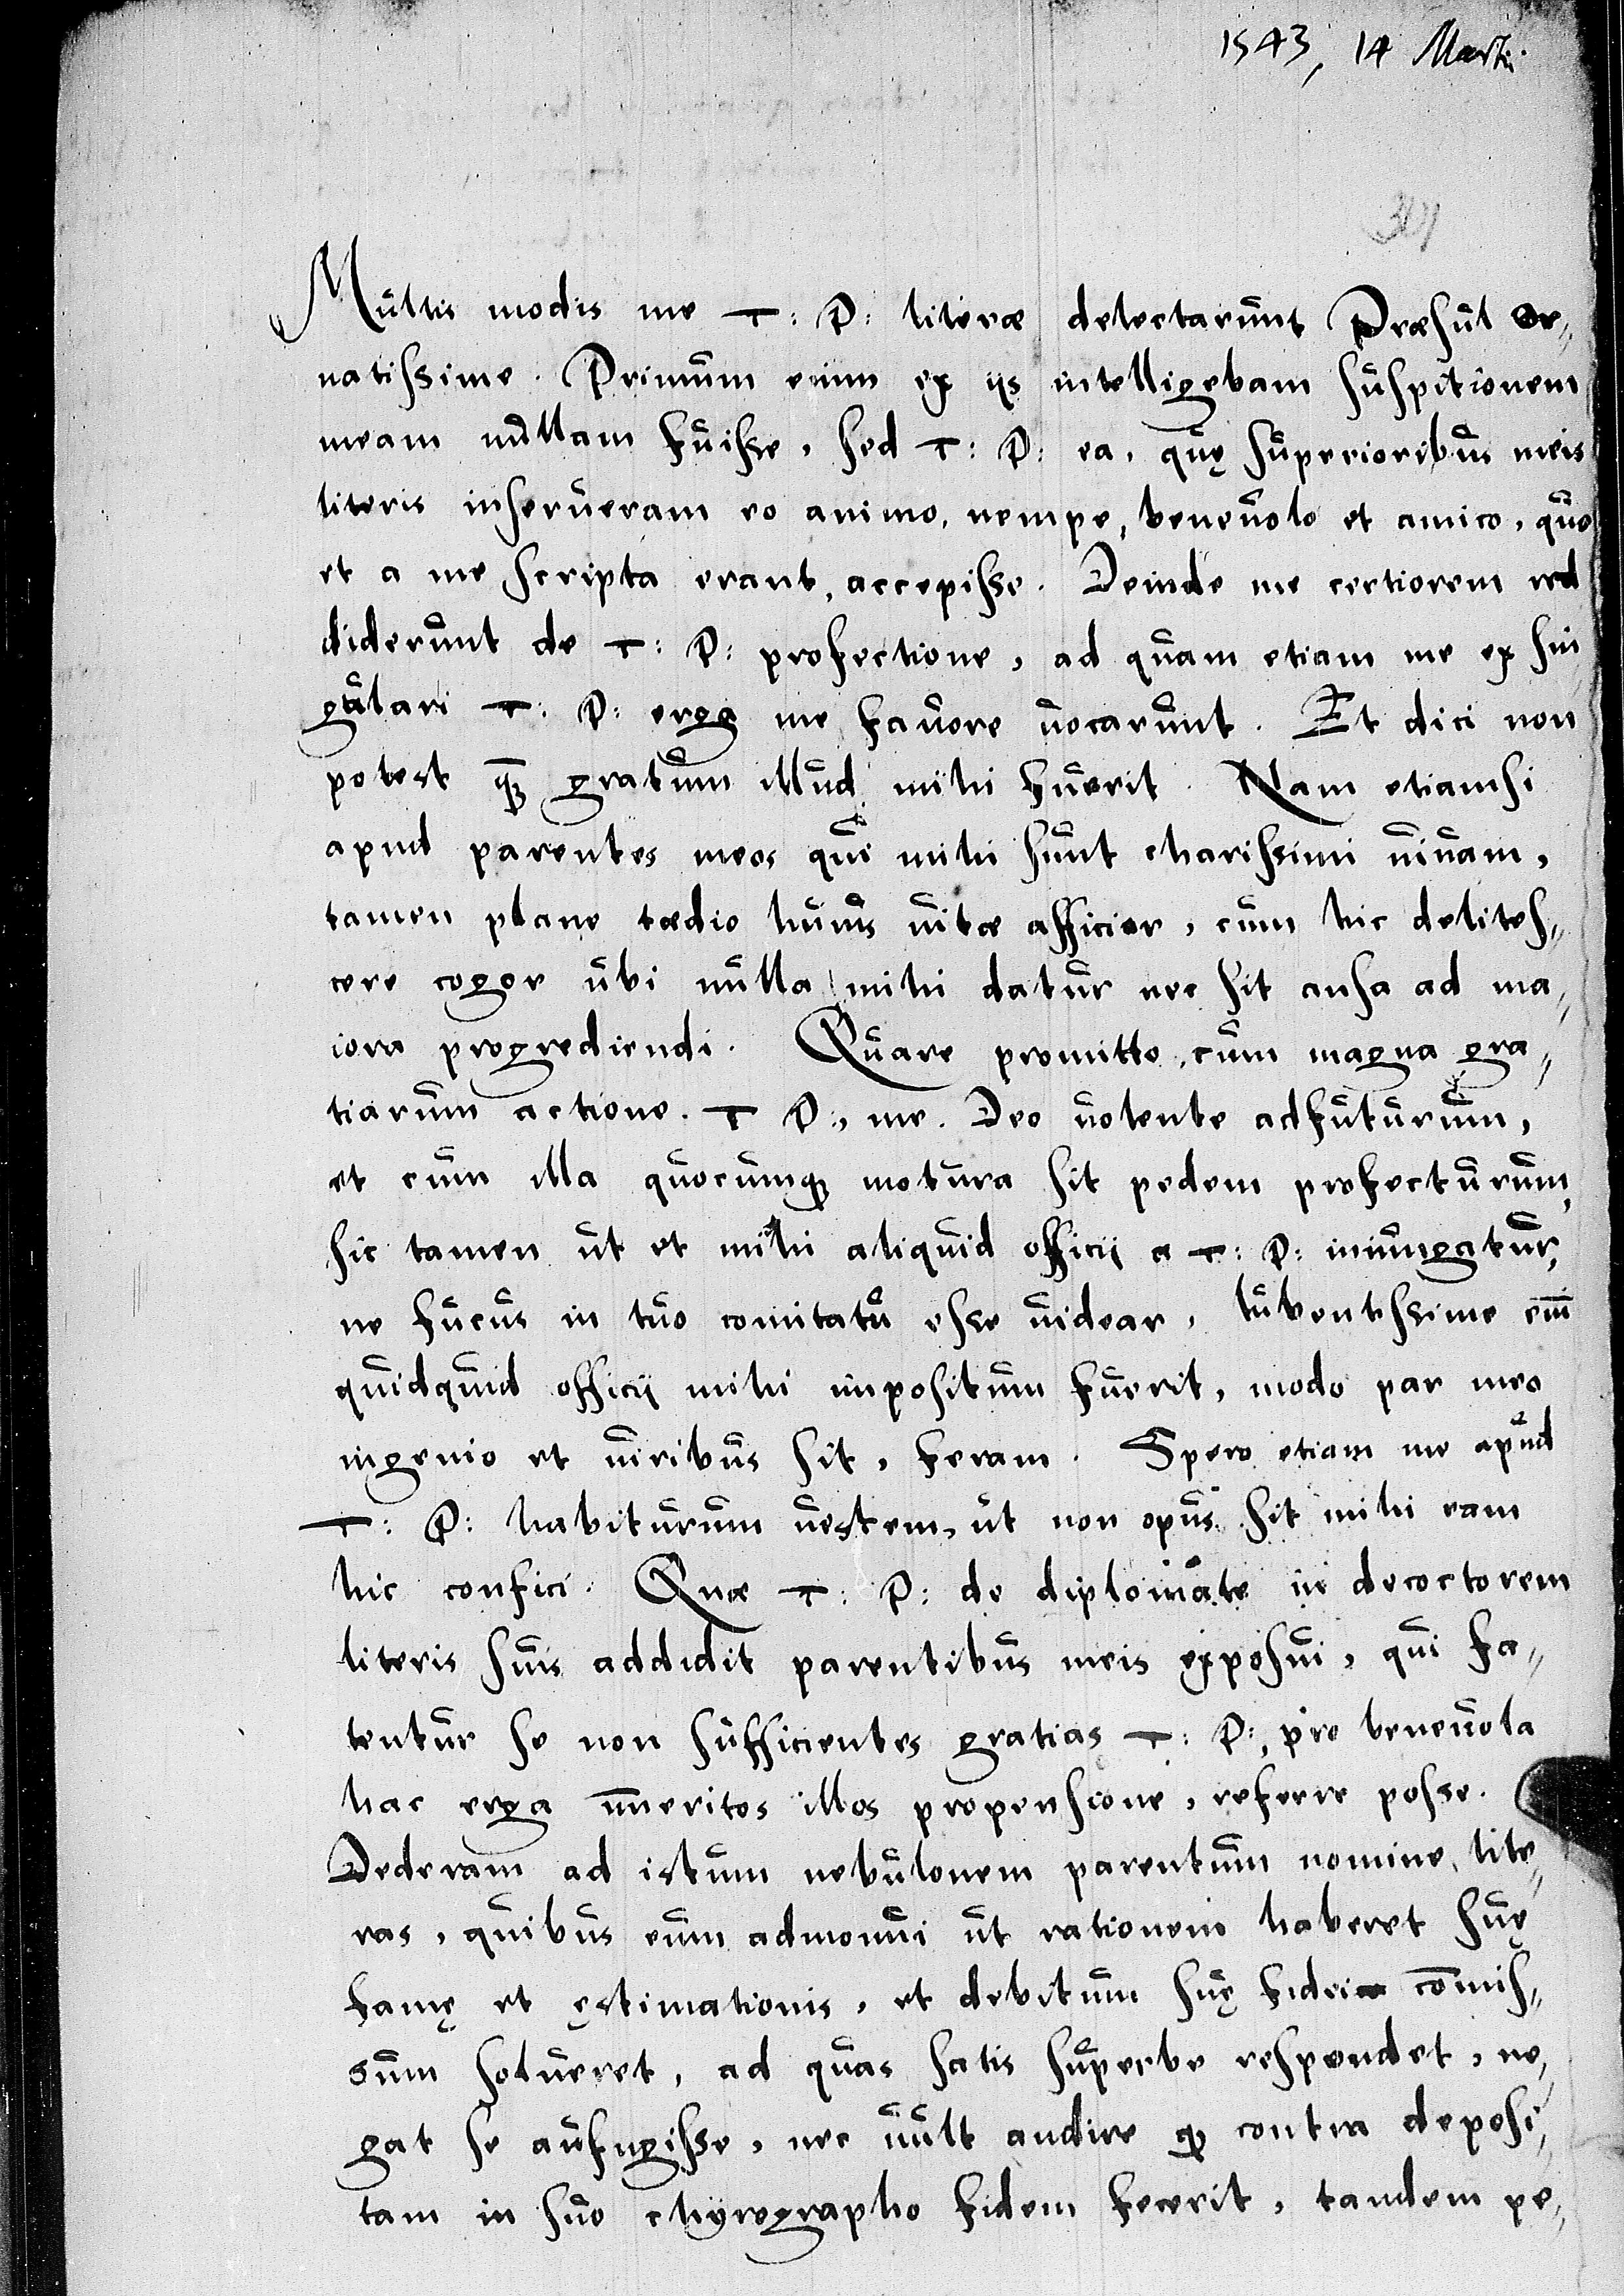 1543, 14 Martii
301
Multis modis me T: P: literæ delectarunt Præsul Or„
natissime. Primum enim ex ijs intelligebam suspitionem
meam nullam fuisse, sed T: P: ea, quę superioribus meis
literis inserueram eo animo, nempe, beneuolo et amico, quo
et a me scripta erant, accepisse. Deinde me certiorem red
diderunt de T: P: profectione, ad quam etiam me ex sin„
gulari T: P: erga me fauore uocarunt. Et dici non
potest qȝ gratum illud mihi fuerit. Nam etiamsi
apud parentes meos qui mihi sunt charissimi uiuam,
tamen plane tædio huius uitæ afficior, cum hic delites„
cere cogor ubi nulla mihi datur nec sit ansa ad ma„
iora progrediendi. Quare promitto, cum magna gra„
tiarum actione. T P:, me. Deo uolente adfuturum,
et cum illa quocumqȝ motura sit pedem profecturum,
sic tamen ut et mihi aliquid officij a T: P: iniungatur,
ne fucus in tuo comitatu esse uidear, lubentissime em̄
quidquid officij mihi impositum fuerit, modo par meo
ingenio et uiribus sit, feram. Spero etiam me apud
T: P: habiturum uestem, ut non opus sit mihi eam
hic confici. Quæ T: P: de diplomate in decoctorem
literis suis addidit parentibus meis exposui, qui fa„
tentur se non sufficientes gratias T: P:, pro beneuola
hac erga im̄eritos illos propensione, referre posse.
Dederam ad istum nebulonem parentum nomine, lite„
ras, quibus eum admonui ut rationem haberet suę
famę et ęstimationis, et debitum suę fidei com̄is„
sum solueret, ad quas satis superbe respondet, ne„
gat se aufugisse, nec uult audire qȝ contra deposi„
tam in suo chyrographo fidem fecerit, tandem pe„